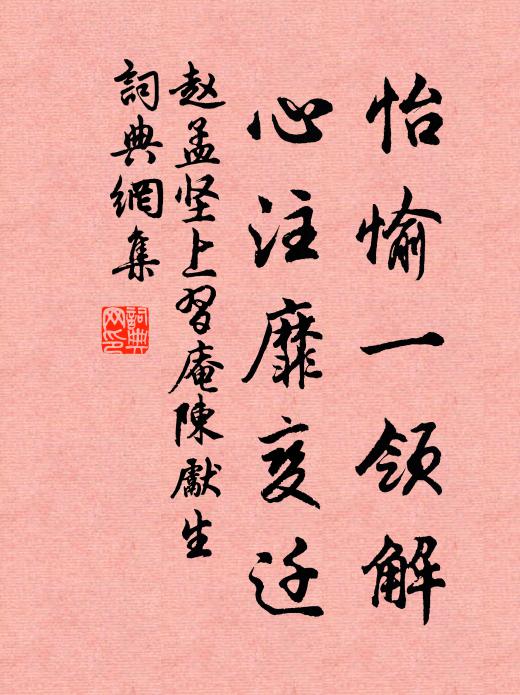 怡愉一领解
心注靡变迁
赵孟坚上习庵陈献生
詞典網集
詞典
网印